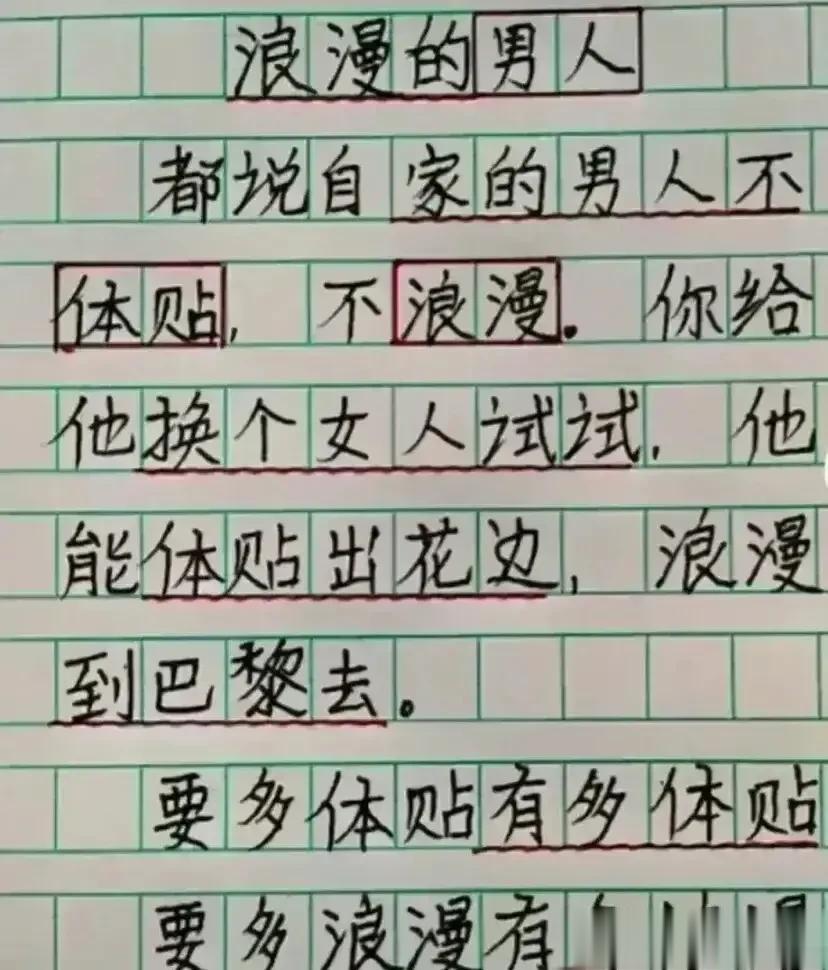 浪漫的男人
都说自家的男人不
体贴,不浪漫。你给
他换个女人试试,他
能体贴出花边,浪漫
到巴黎去。
要多体贴有多体贴
要多浪漫有